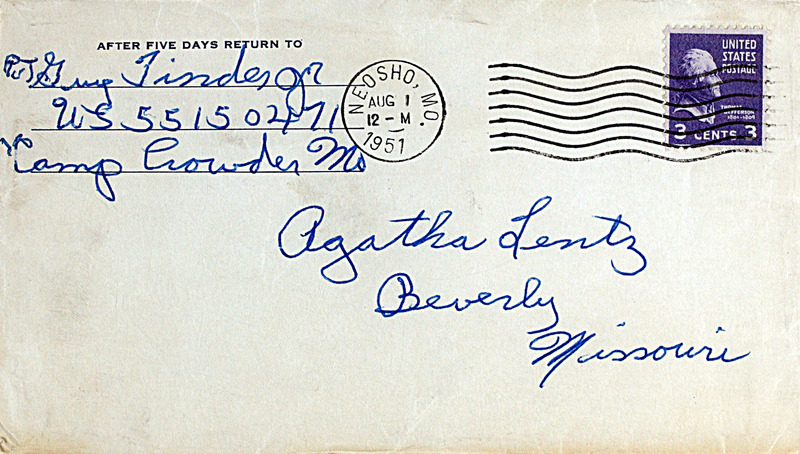 AFTER FIVE DAYS RETURN TO
Pvt Guy Tinder Jr
US 55150271
Camp Crowder Mo
NEOSHO, MO.
AUG 1
12 - M
1951
UNITED
STATES
POSTAGE
THOMAS
JEFFERSON
1801-1809
3 CENTS 3
Agatha Lentz
Beverly
Missouri